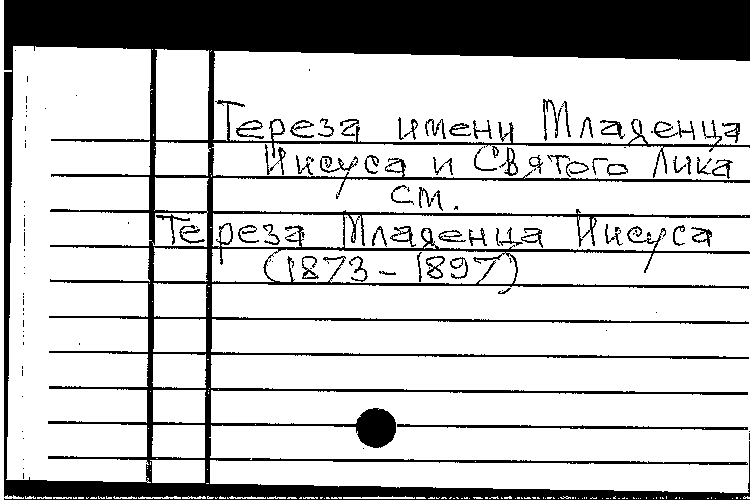 Тереза имени Младенца
Иисуса и Святого Лика
см.
Тереза Младенца Иисуса
(1873-1897)